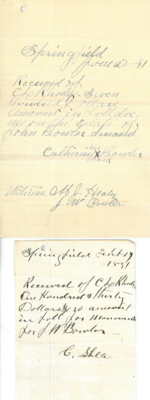 Springfield
June 20 - 91
Received of
C L Rhody Seven
Hundred Dollars
Amount in full due
me from the Estate of
John Bowler deceased
Catherine X Bowler
Witness A J Healy
J W Bowler
Springfield Feb 19
1891
Received of C L Rhody
One Hundred & thirty
Dollars in amount
in full for Monument
for J W Bowler
C. Shea